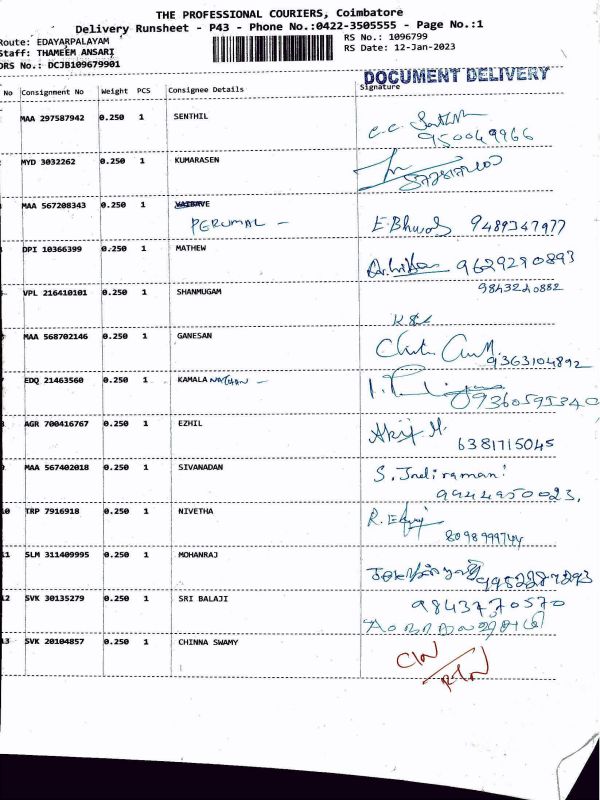 THE PROFESSIONAL COURIERS, Coimbatore
Delivery Runsheet - P43 - Phone No.:0422-3505555 - Page No.:1
Route: EDAYARPALAYAM RS No.: 1096799
Staff: THAMEEM ANSARI RS Date: 12-Jan-2023
DRS No.: DCJB109679901
DOCUMENT DELIVERY
No Consignment No Weight PCS Consignee Details Signature
MAA 297587942 0.250 1 SENTHIL
950049966
MYD 3032262 0.250 1 KUMARASEN
MAA 567208343 0.250 1
PERUMAL - 9489347977
DPI 10366399 0.250 1 MATHEW
9629290893
VPL 216410101 0.250 1 SHANMUGAM 9843240882
MAA 568702146 0.250 1 GANESAN
9363104892
EDQ 21463560 0.250 1 KAMALA NATHAN -
9360595340
AGR 700416767 0.250 1 EZHIL
6381715045
MAA 567402018 0.250 1 SIVANADAN S. Indiramani
9944950023,
10 TRP 7916918 0.250 1 NIVETHA
8098999744
11 SLM 311409995 0.250 1 MOHANRAJ
12 SVK 30135279 0.250 1 SRI BALAJI 9843770570
13 SVK 20104857 0.250 1 CHINNA SWAMY